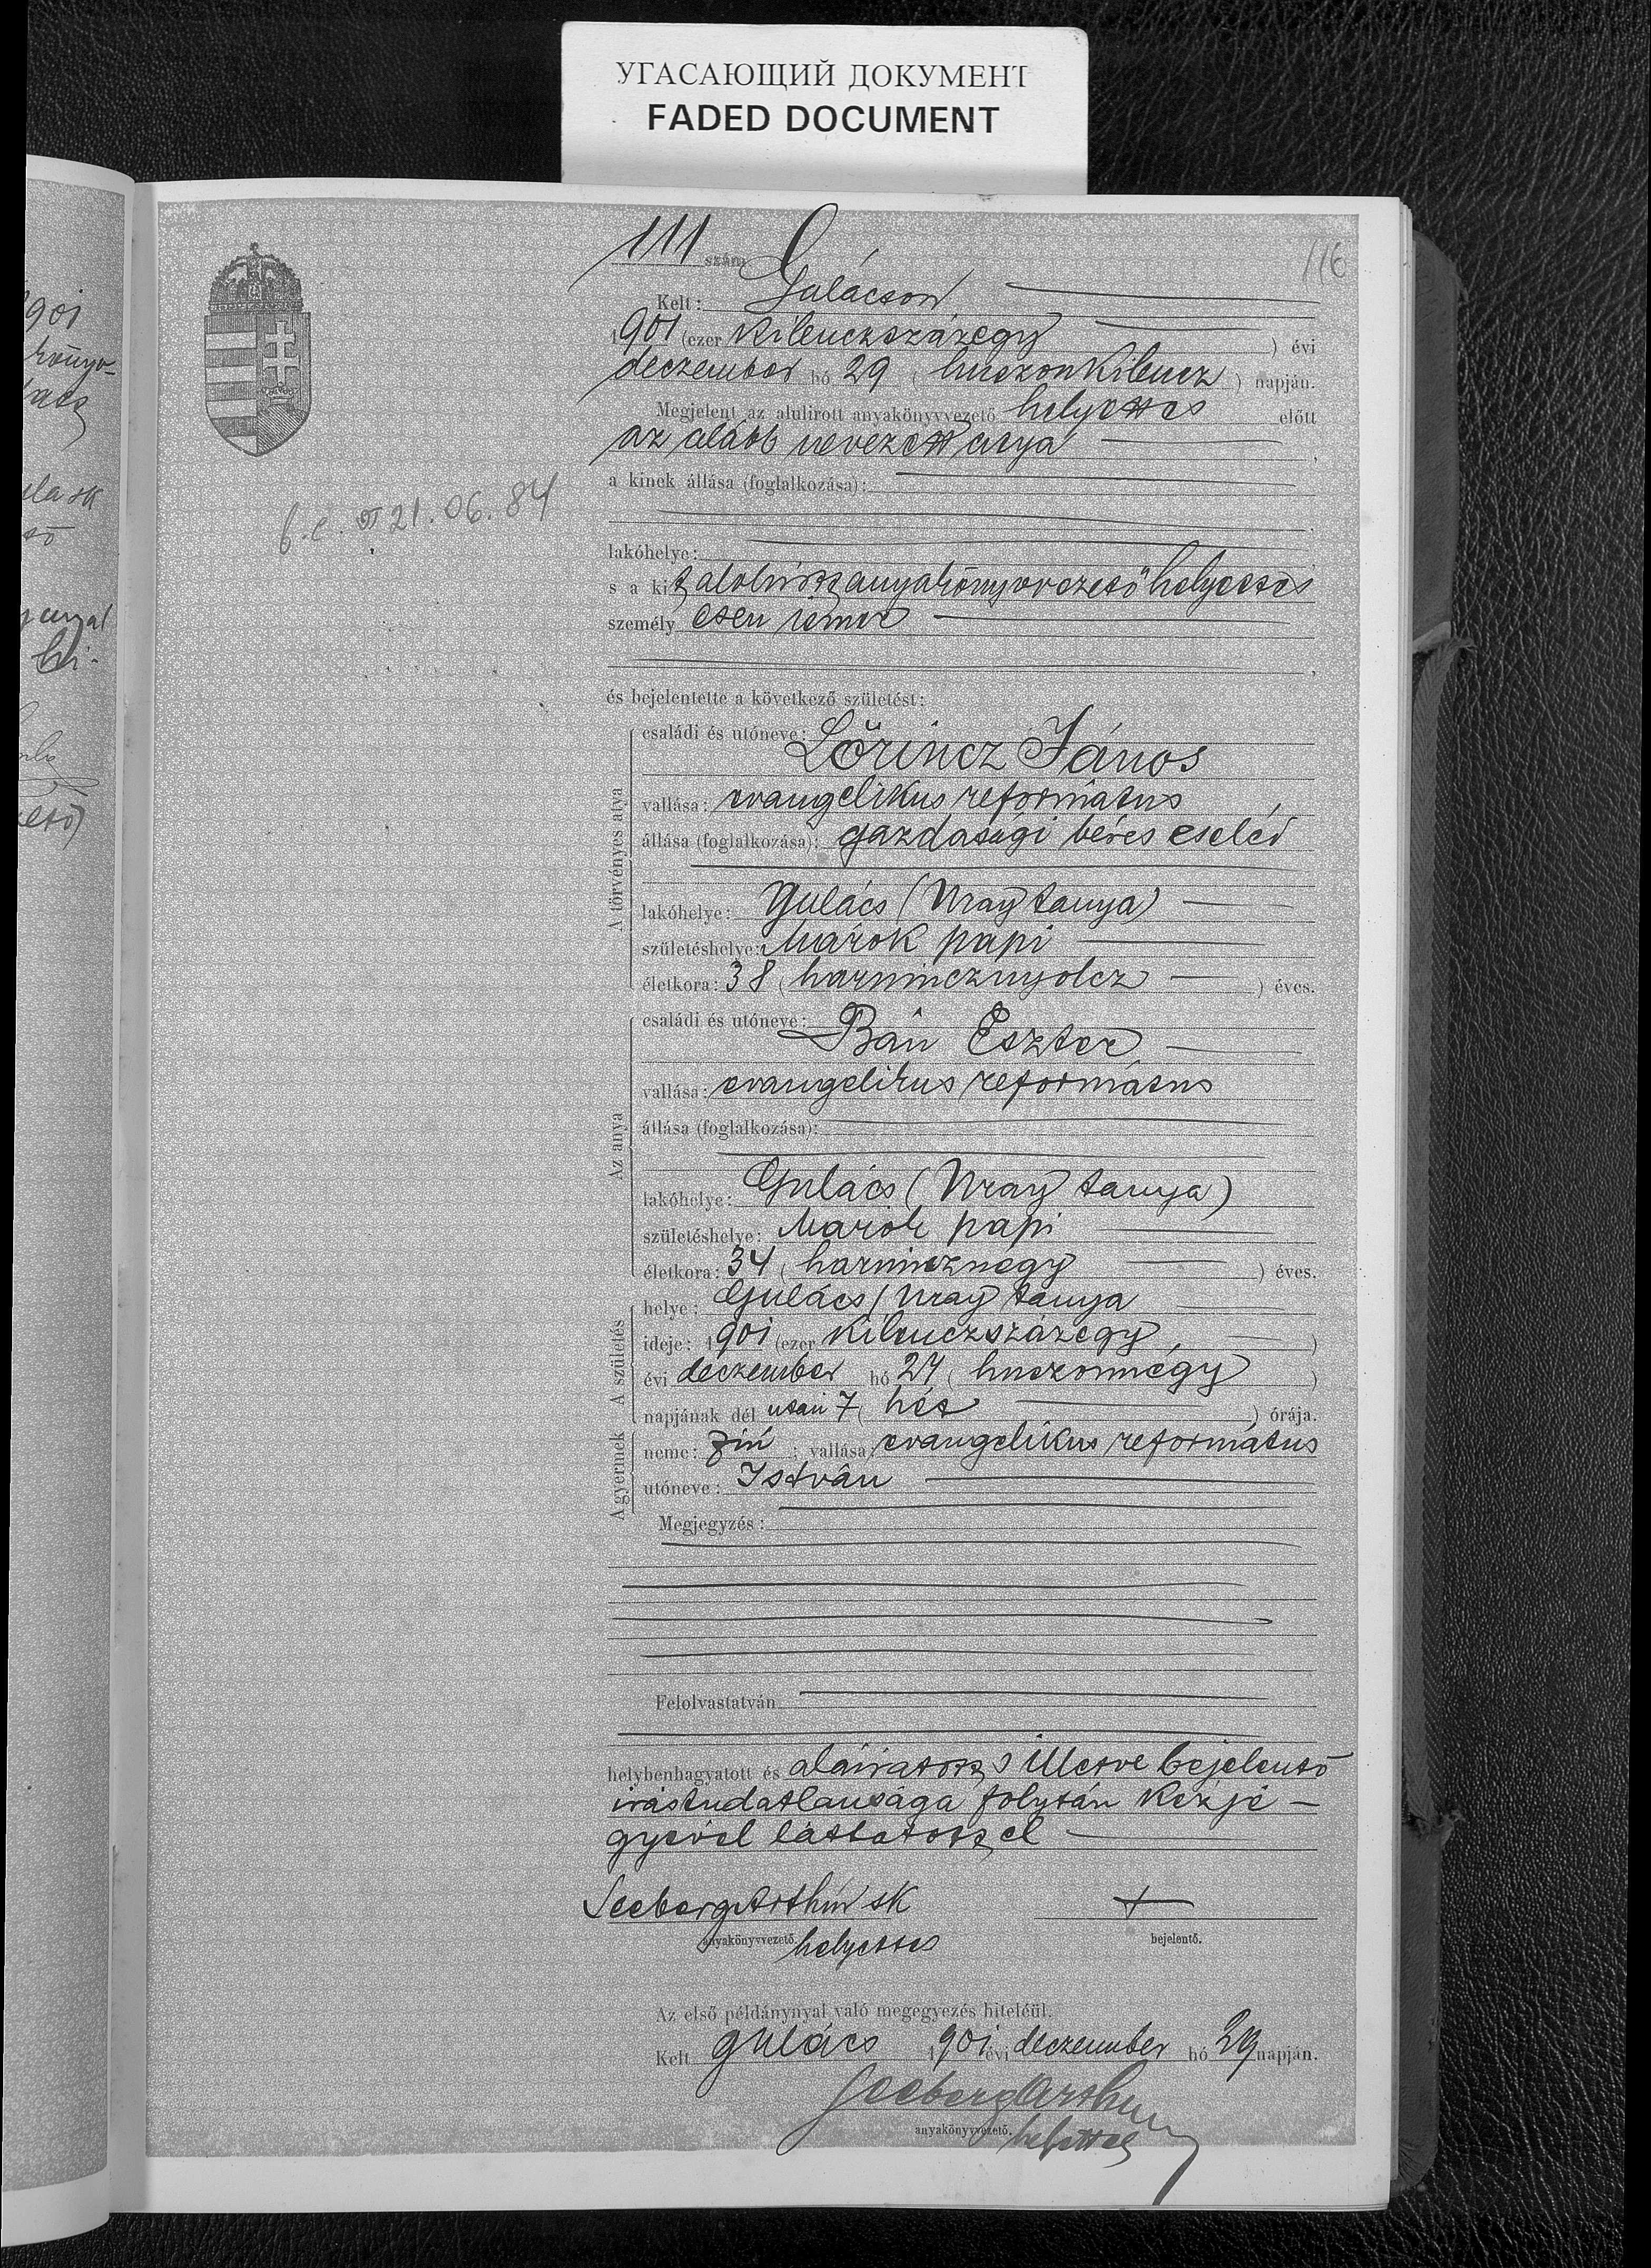 УГАСАЮЩИЙ ДОКУМЕНТ
FADED DOCUMENT
111 szám
116
Kelt: Gulácson
1901 (ezer kilenczszázegy) évi
deczember hó 29 (huszonkilencz) napján.
Megjelent az alulirott anyakönyvvezető helyettes előtt
az alább nevezett anya,
a kinek állása (foglalkozása):
f.e. 21.06.84
lakóhelye:
s a kit alolirott anyakönyvvezető helyettes
személyesen ismer
és bejelentette a következő születést:
A törvényes atya
családi és utóneve:
Lőrincz János
vallása: evangelikus református,
állása (foglalkozása): gazdasági béres cseléd
lakóhelye: Gulács (Uray tanya)
születéshelye: Márok papi
életkora: 38 (harmincznyolcz) éves.
Az anya
családi és utóneve:
Bán Eszter
vallása: evangelikus református
állása (foglalkozása):
lakóhelye: Gulács (Uray tanya)
születéshelye: Márok papi
életkora: 34 (harmincznégy) éves.
A születés
helye: Gulács / Uray tanya
ideje: 1901 (ezer kilenczszázegy)
évi deczember hó 24 (huszonnégy)
napjának dél utáni 7 (hét) órája.
A gyermek
neme: fiú; vallása: evangelikus református
utóneve: István
Megjegyzés:
Felolvastatván
helybenhagyatott és aláiratott, illetve bejelentő
irástudatlansága folytán kézje-
gyével láttatott el
Seeberg Arthur sk +
anyakönyvvezető helyettes bejelentő.
Az első példánynyal való megegyezés hiteléül.
Kelt Gulács 1901 évi deczember hó 29 napján.
Seeberg Arthur
anyakönyvvezető. helyettes